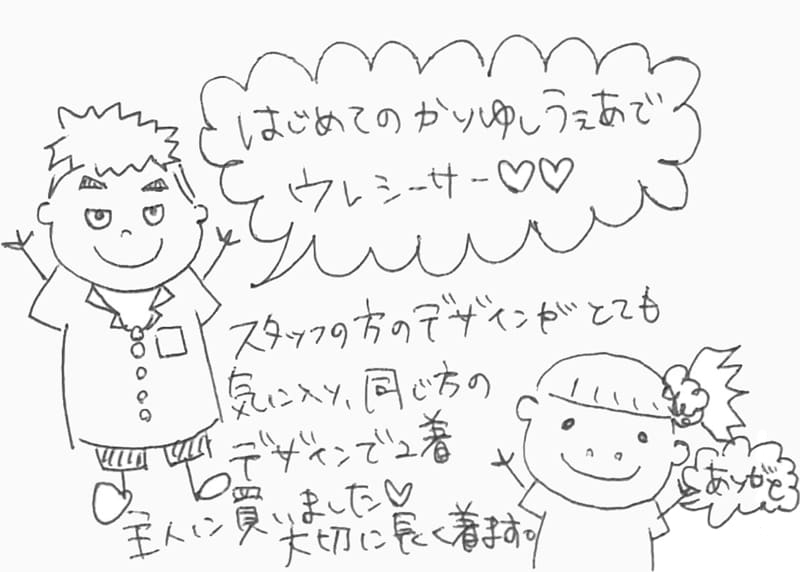 はじめてのかりゆしうぇあで
ウレシーサー♡♡
スタッフの方のデザインがとても
気に入り、同じ方の
デザインで2着
買いました♡
主人に大切に長く着ます。
ありがと